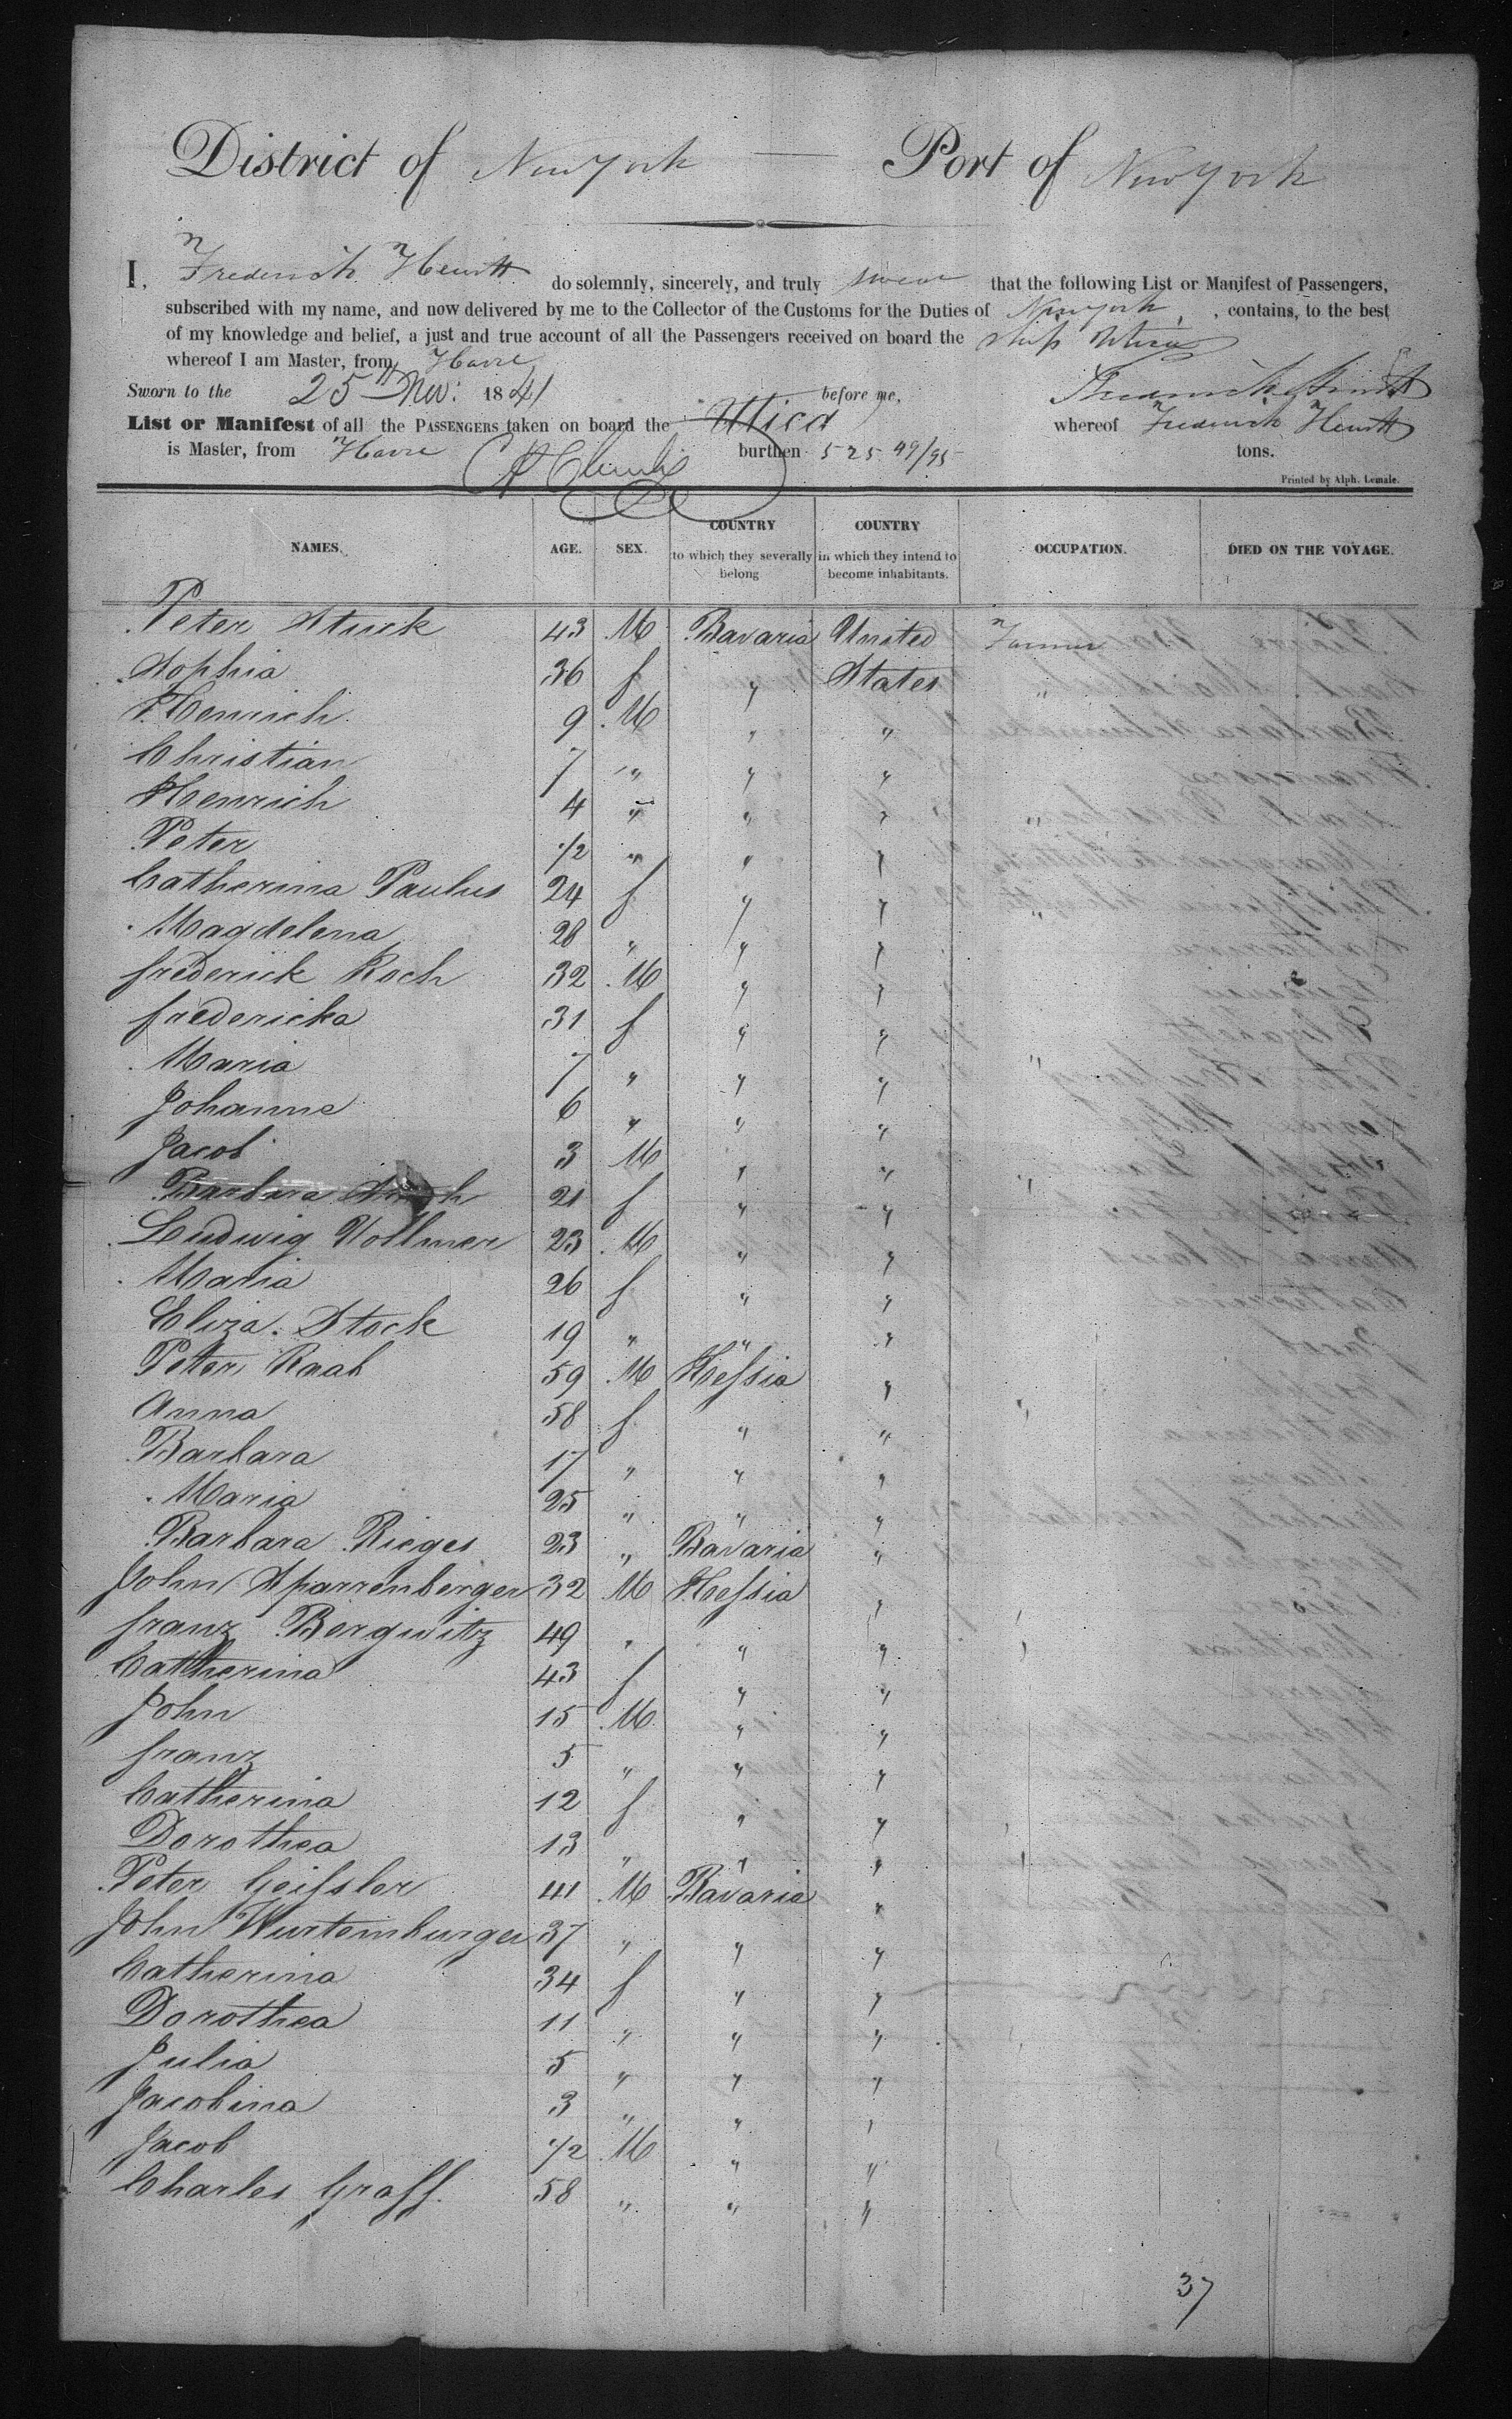 District of New York Port of New York
I, Frederick Hewitt do solemnly, sincerely, and truly swear that the following List or Manifest of Passengers,
subscribed with my name, and now delivered by me to the Collector of the Customs for the Duties of New York, contains, to the best
of my knowledge and belief, a just and true account of all the Passengers received on board the Ship Utica
whereof I am Master, from Havre
Sworn to the 25th Nov: 1841 before me, Frederick Hewitt
List or Manifest of all the PASSENGERS taken on board the Utica whereof Frederick Hewitt
is Master, from Havre burthen 525 49/95 tons.
Printed by Alph. Lemale.
NAMES. AGE. SEX. COUNTRY to which they severally belong COUNTRY in which they intend to become inhabitants. OCCUPATION. DIED ON THE VOYAGE.
Peter Stuck 43 M Bavaria United Farmer
Sophia 36 f " States "
Henrich 9 M " "
Christian 7 " " "
Henrich 4 " " " "
Peter 1/2 " " "
Catherina Paulus 24 f " " "
Magdelena 28 " " "
frederick Koch 32 M " "
fredericka 31 f " "
Maria 7 " " " "
Johanne 6 " " "
Jacob 3 M " "
Barbara 21 f " "
Ludwig Vollmer 23 M " "
Maria 26 f " "
Eliza. Stock 19 " " "
Peter Raab 59 M Hessia "
Anna 58 f " "
Barbara 17 " " "
Maria 25 " " "
Barbara Rieges 23 " Bavaria "
John Sparrenberger 32 M Hessia "
franz Bergwitz 49 " " "
Catherina 43 f " "
John 15 M " "
franz 5 " " "
Catherina 12 f " "
Dorothea 13 " " "
Peter Geissler 41 M Bavaria "
John Wurtemburger 37 " " "
Catherina 34 f " "
Dorothea 11 " " "
Julia 5 " " "
Jacobina 3 " " "
Jacob 1/2 M " "
Charles Graff. 58 " " "
37